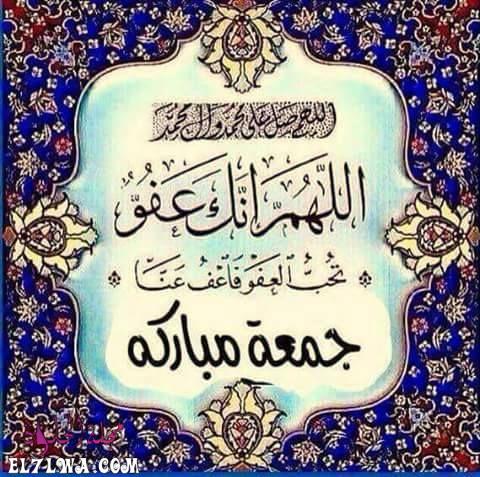 اللهم صل على محمد وآل محمد
اللَّهُمَّ إِنَّكَ عَفُوٌّ
تُحِبُّ العَفْوَ فَاعْفُ عَنَّا
جمعة مباركه
EL7LWA.COM